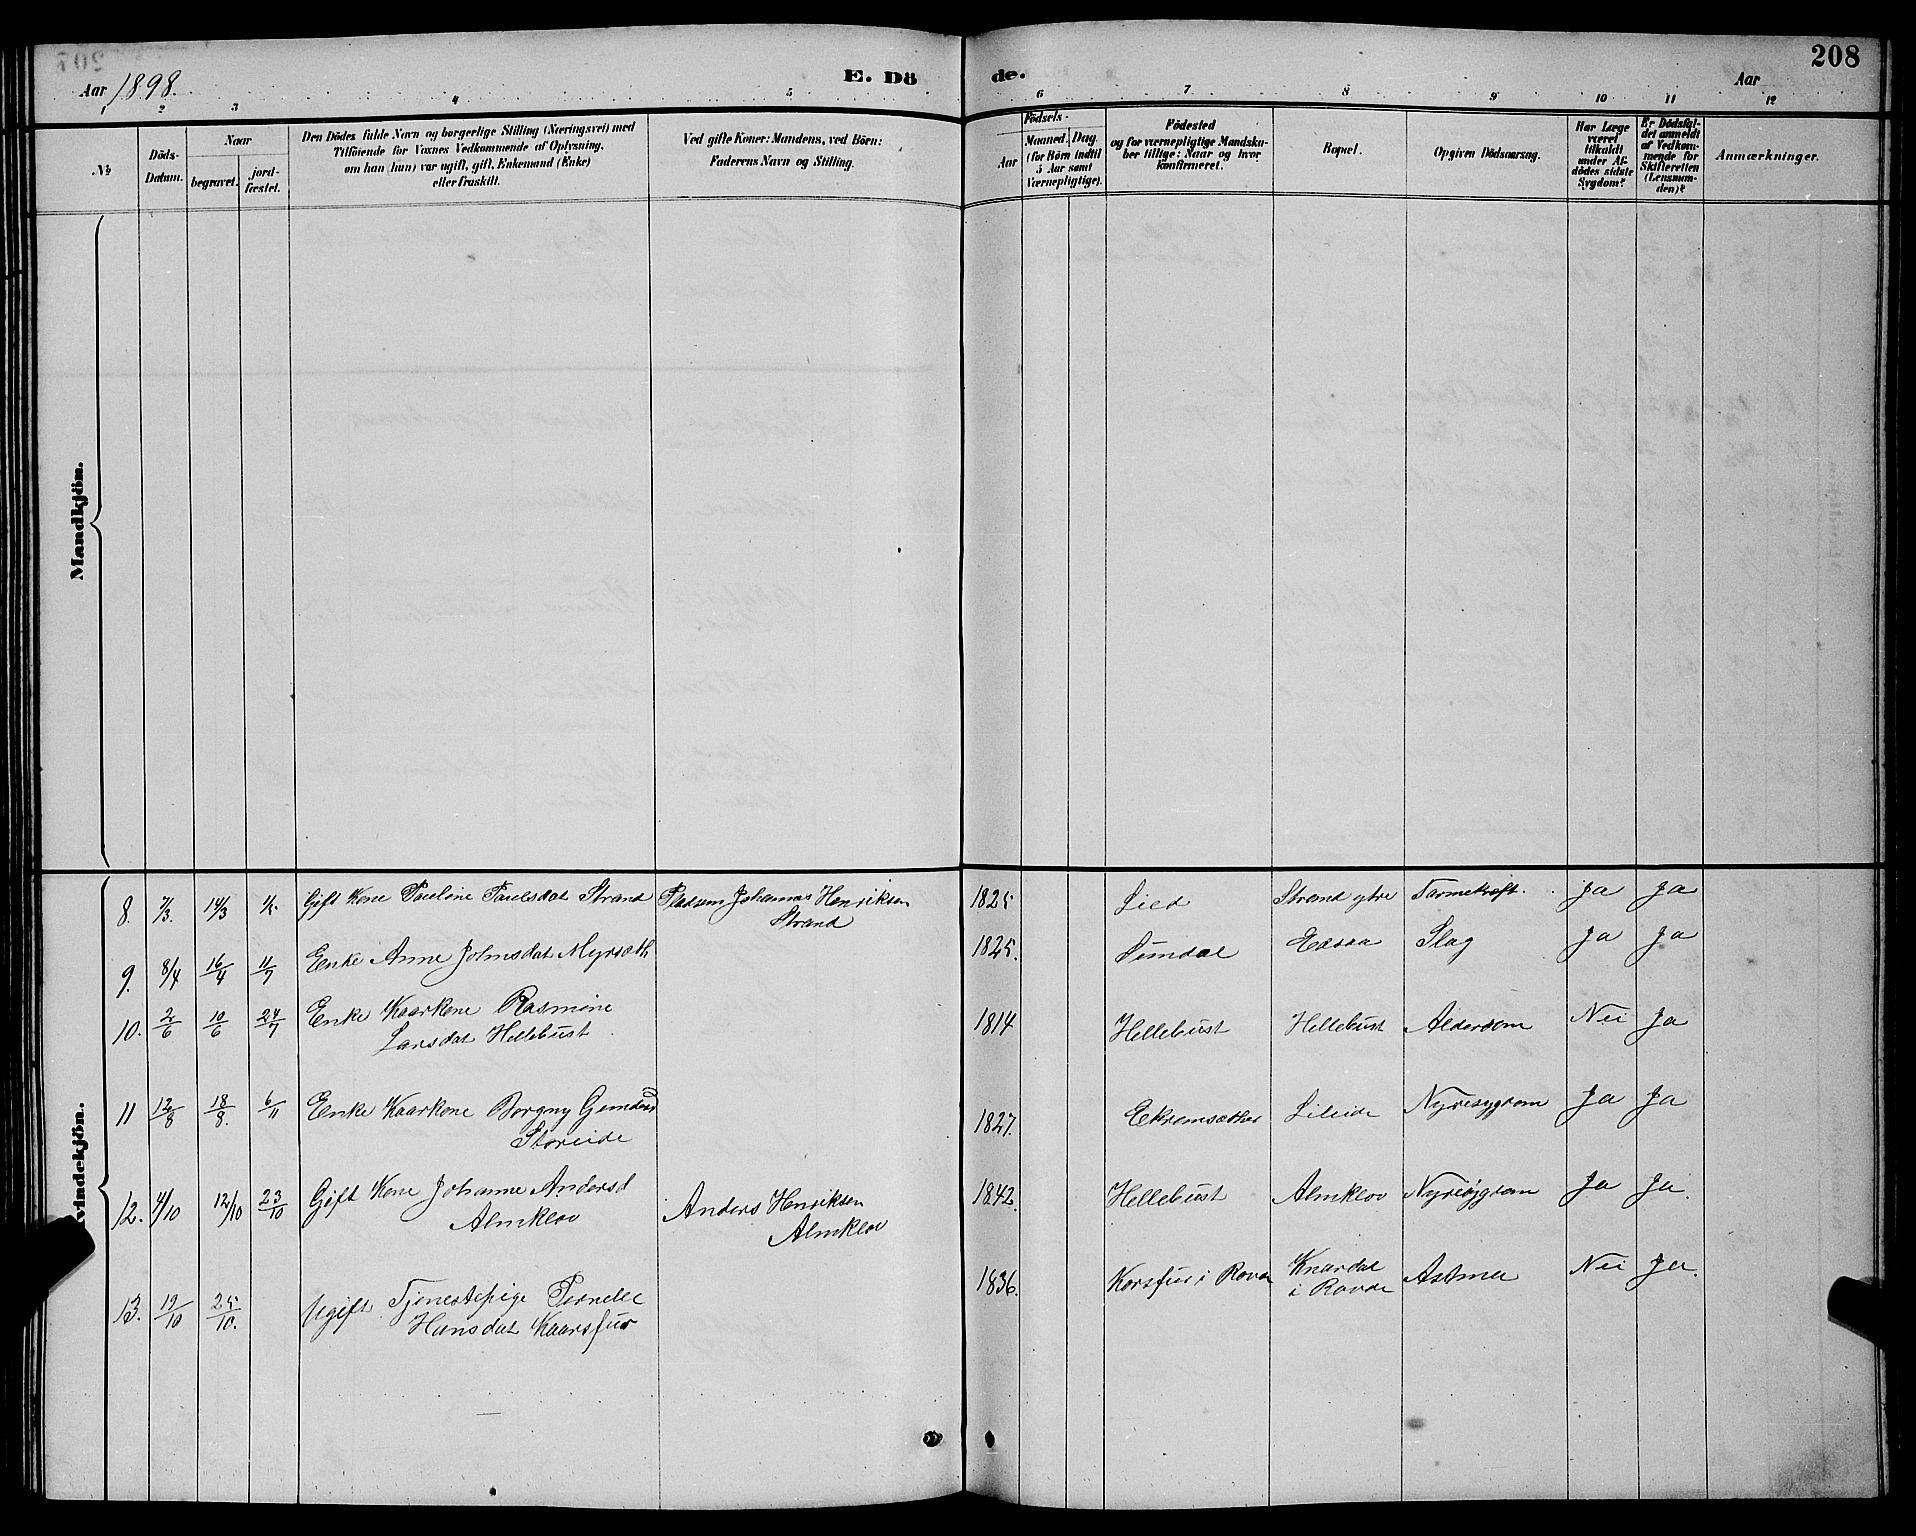 207
208
Aar 1898.
E. Dö
de.
Aar
2
3
4
5
6
7
8
9
10
11
12
№
Döds-
Datum.
Naar
begravet.
jord-
fæstet.
Den Dödes fulde Navn og borgerlige Stilling (Næringsvei) med
Tilföiende for Voxnes Vedkommende af Oplysning,
om han (hun) var ugift, gift, Enkemand (Enke)
eller fraskilt.
Ved gifte Koner: Mandens, ved Börn:
Faderens Navn og Stilling.
Aar
Födsels-
Maaned.
Dag.
(for Börn indtil
5 Aar samt
Værnepligtige).
Födested
og for værnepligtige Mandska-
ber tillige: Naar og hvor
konfirmeret.
Bopæl.
Opgiven Dödsaarsag.
Har Læge
været
tilkaldt
under Af-
dödes sidste
Sygdom?
Er Dödsfal-
det anmeldt
af Vedkom-
mende for
Skifteretten
(Lensman-
den)?
Anmærkninger.
Mandkjön.
Kvindekjön.
8. 7/3. 14/3 Gift Kone Pauline Paulsdat Strand Pladsem Johannes Henriksen
Strand
1825 Lied Strand ytre Tarmekræft. Ja Ja
9. 8/4 16/4 11/7 Enke Anne Johnsdat Myrsæth
1825. Sundal Eksaa Slag Ja Ja
10. 2/6 10/6 24/7 Enke Kaarkone Rasmine
Larsdat Hellebust
1814 Hellebust Hellebust Alderdom Nei Ja
11 12/8 18/8. 6/11 Enke Kaarkone Borgny Gundersd
Storeide
1827. Ekremsæther Lileide Nyresygdom Ja Ja
12. 4/10 12/10 23/10 Gift Kone Johanne Andersd
Almklov
Anders Henriksen
Almklov
1842. Hellebust Almklov Nyresygdom Ja Ja.
13. 19/10 25/10. Ugift Tjenestepige Pernelle
Hansdat Kaarsfur
1836. Korsfur i Rovde Knardal
i Rovde Astma Nei Ja.